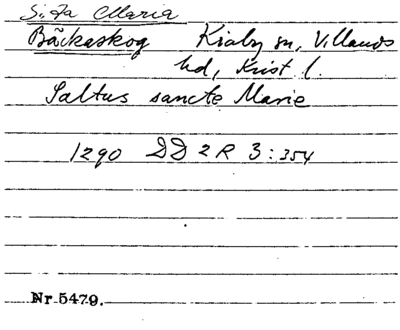 S:ta Maria
Bäckaskog Kiaby sn, Villands
hd, Krist l.
Saltus sancte Marie
1290 DD 2 R 3:354
Nr 5479.